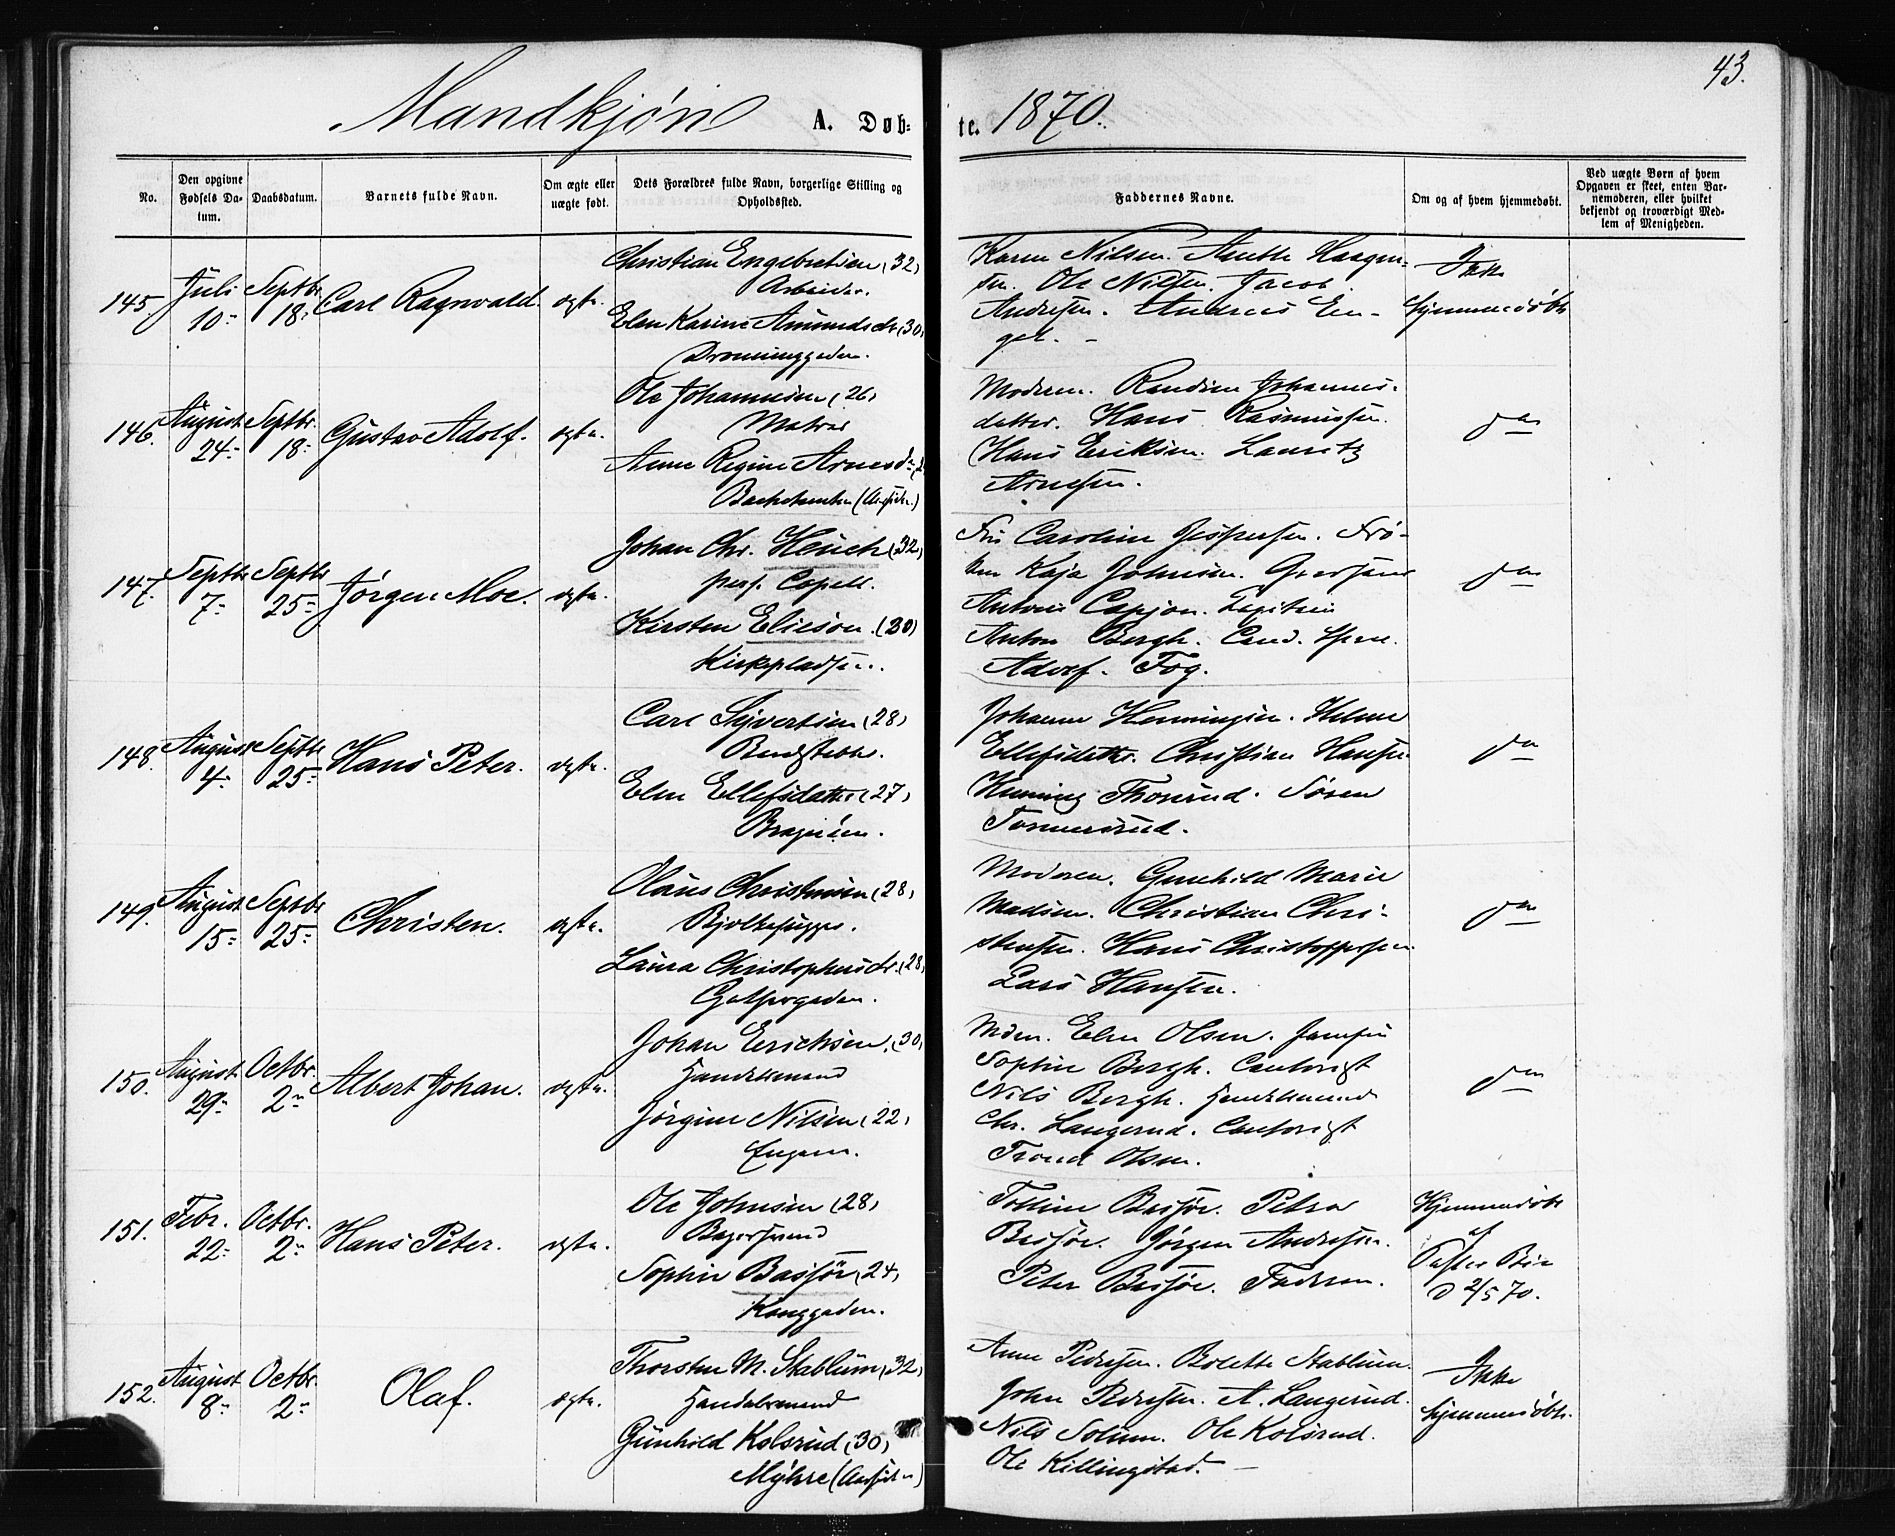 43.
Mandkjøn A. Døb- te. 1870.
No.
Den opgivne Fødsels Datum.
Daabsdatum.
Barnets fulde Navn.
Om ægte eller uægte født.
Dets Forældres fulde Navn, borgerlige Stilling og Opholdssted.
Faddernes Navne.
Om og af hvem hjemmedøbt.
Ved uægte Børn af hvem Opgaven er skeet, enten Barnemoderen, eller hvilket bekjendt og troværdigt Medlem af Menigheden.
145. Juli 10- Septbr. 18- Carl Ragnvald. ægte.
Christian Engebretsen (32)
Arbeider.
Elen Karine Amundsdr (30)
Dronninggaden.
Karen Nilsen. Anette Haagen-
sen. Ole Nilsen. Jacob
Andresen. Andreas En-
gel. -
Ikke
hjemmedøbt
146. August 24- Septbr. 18- Gustav Adolf. ægte.
Ole Johannesen (26)
Matros
Anne Regine Arnesd-
Moderen. Randine Johannes-
datter. Hans Rasmussen.
Hans Eriksen. Lauritz
Arnesen.
do
147. Septbr 7- Septbr 25- Jørgen Moe. ægte.
Johan Chr. Heuch (32)
pers. Capell.
Kirsten Elieson. (30)
Kirkepladsen.
Fru Caroline Jespersen. Frø-
ken Kaja Johnsen.
Anton Bergh. Cand.
Fog.
do
148. August 4- Septbr 25- Hans Peter. ægte.
Carl Syvertsen (28)
Elen Ellefsdatter (27)
Bragnæsen.
Johanne Henningsen. Helene
Ellefsdatter. Christian Hansen
Henning Thorsrud. Søren
do
149. August 15- Septbr 25- Christen. ægte.
Olaus Christensen (28)
Bjelkehugger.
Laura Christophersdr. (28)
Moderen. Gunhild Marie
Madsen. Christian Chri-
stensen. Hans Christoffersen
Lars Hansen.
do
150. August 29- Octbr. 2- Albert Johan. ægte.
Johan Erichsen. (30)
Handelsmand
Jørgine Nilsen (22)
Engene.
Mdrn. Elen Olsen. Jomfru
Sophie Bergh. Contorist
Nils Bergh. Handelsmand
Chr. Langerud. Contorist
Trond Olsen.
do
151. Febr. 22- Octbr. 2- Hans Peter. ægte.
Ole Johnsen (28)
Bagersvend
Sophie Basjør (24)
Konggaden.
Petra
Basjør. Jørgen Andresen.
Peter Basjør. Faderen.
Hjemmedøbt
af
Pastor
D 2/5 70.
152. August 8- Octbr. 2- Olaf. ægte.
Thorsten M. Stablum (32)
Handelsmand
Gunhild Kolsrud (30)
Anne Pedersen. Bolette Stablum.
John Pedersen. A. Langerud.
Nils Solum. Ole Kolsrud.
Ole Killingstad. -
Ikke
hjemmedøbt.